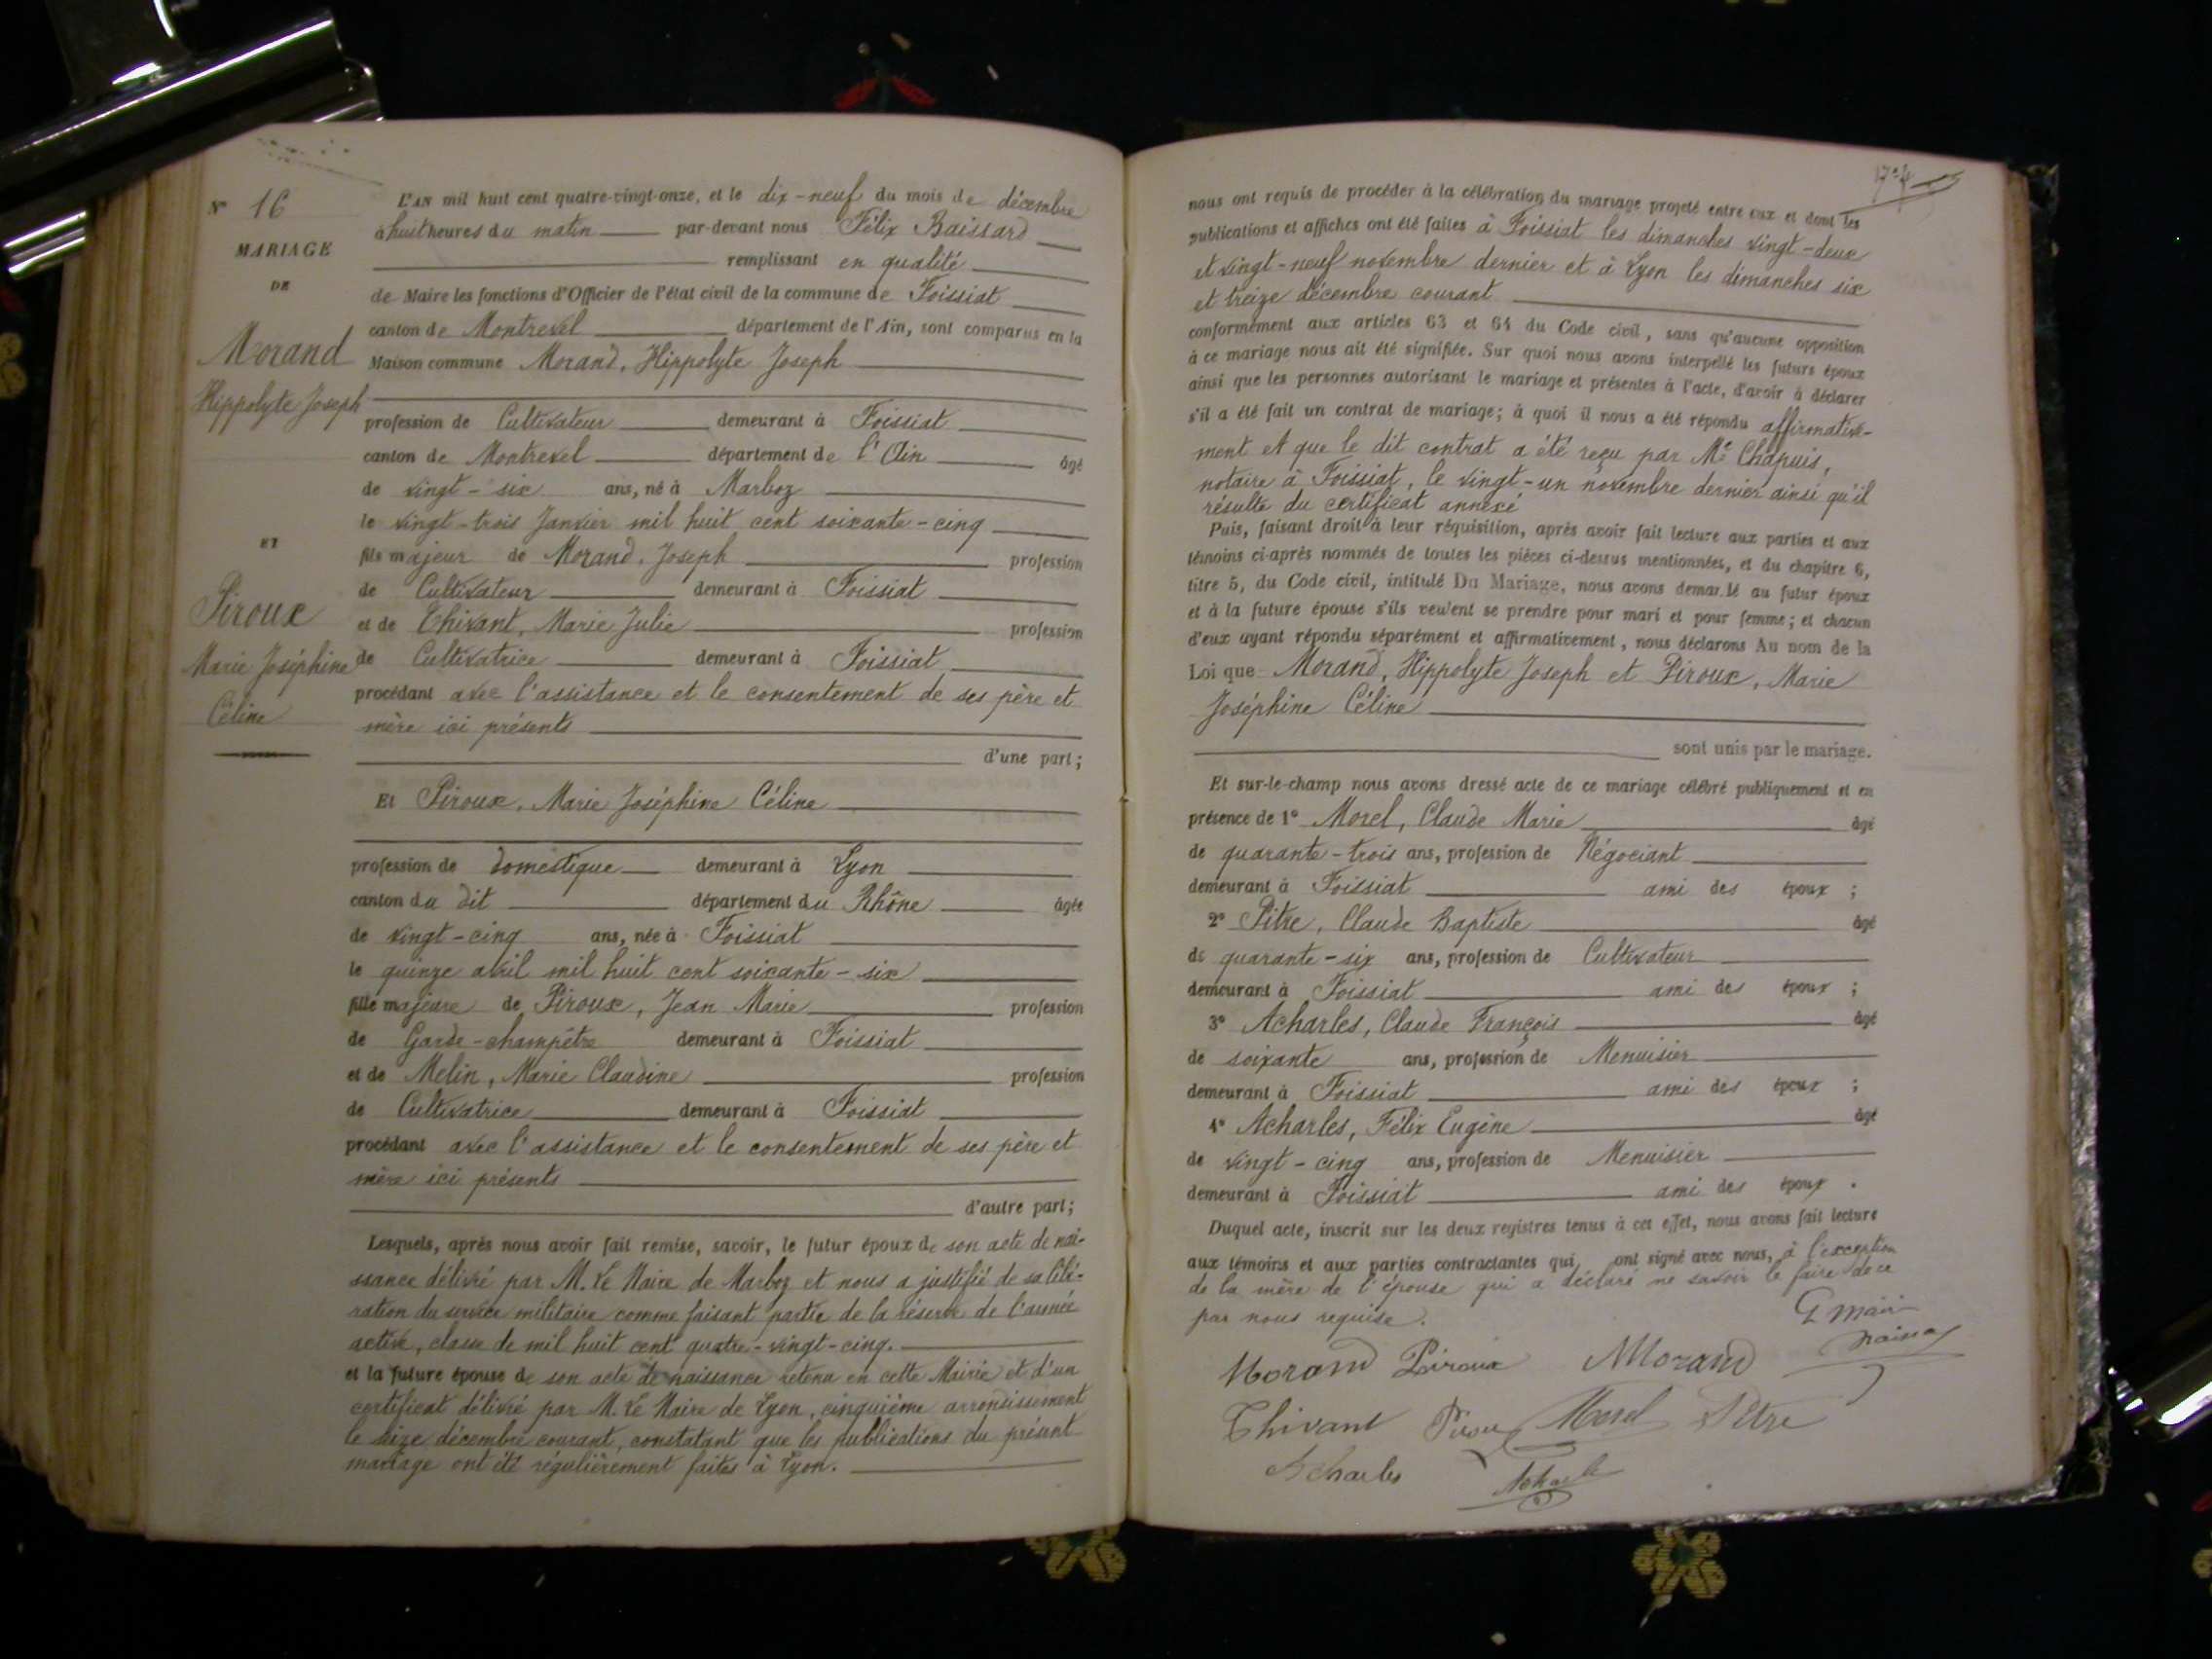 N° 16
MARIAGE
DE
Morand
Hippolyte Joseph
ET
Piroux
Marie Joséphine
Céline
L'AN mil huit cent quatre-vingt-onze, et le dix-neuf du mois de décembre
à huit heures du matin par-devant nous Félix Baissard
remplissant en qualité
de Maire les fonctions d'Officier de l'état civil de la commune de Foissiat
canton de Montrevel département de l'Ain, sont comparus en la
Maison commune Morand, Hippolyte Joseph
profession de Cultivateur demeurant à Foissiat
canton de Montrevel département de l'Ain âgé
de vingt-six ans, né à Marboz
le vingt-trois Janvier mil huit cent soixante-cinq
fils majeur de Morand, Joseph profession
de Cultivateur demeurant à Foissiat
et de Thivant, Marie Julie profession
de Cultivatrice demeurant à Foissiat
procédant avec l'assistance et le consentement de ses père et
mère ici présents
d'une part;
Et Piroux, Marie Joséphine Céline
profession de domestique demeurant à Lyon
canton du dit département du Rhône âgée
de vingt-cinq ans, née à Foissiat
le quinze avril mil huit cent soixante-six
fille majeure de Piroux, Jean Marie profession
de Garde-champêtre demeurant à Foissiat
et de Melin, Marie Claudine profession
de Cultivatrice demeurant à Foissiat
procédant avec l'assistance et le consentement de ses père et
mère ici présents
d'autre part;
Lesquels, après nous avoir fait remise, savoir, le futur époux de son acte de nai-
ssance délivré par M. Le Maire de Marboz et nous a justifié de sa libé-
ration du service militaire comme faisant partie de la réserve de l'armée
active, classe de mil huit cent quatre-vingt-cinq.
et la future épouse de son acte de naissance retenu en cette Mairie et d'un
certificat délivré par M. Le Maire de Lyon, cinquième arrondissement
le seize décembre courant, constatant que les publications du présent
mariage ont été régulièrement faites à Lyon.
nous ont requis de procéder à la célébration du mariage projeté entre eux et dont les
publications et affiches ont été faites à Foissiat les dimanches vingt-deux
et vingt-neuf novembre dernier et à Lyon les dimanches six
et treize décembre courant
conformément aux articles 63 et 64 du Code civil, sans qu'aucune opposition
à ce mariage nous ait été signifiée. Sur quoi nous avons interpellé les futurs époux
ainsi que les personnes autorisant le mariage et présentes à l'acte, d'avoir à déclarer
s'il a été fait un contrat de mariage; à quoi il nous a été répondu affirmative-
ment et que le dit contrat a été reçu par Me Chapuis,
notaire à Foissiat, le vingt-un novembre dernier ainsi qu'il
résulte du certificat annexé
Puis, faisant droit à leur réquisition, après avoir fait lecture aux parties et aux
témoins ci-après nommés de toutes les pièces ci-dessus mentionnées, et du chapitre 6,
titre 5, du Code civil, intitulé Du Mariage, nous avons demandé au futur époux
et à la future épouse s'ils veulent se prendre pour mari et pour femme; et chacun
d'eux ayant répondu séparément et affirmativement, nous déclarons Au nom de la
Loi que Morand, Hippolyte Joseph et Piroux, Marie
Joséphine Céline
sont unis par le mariage.
Et sur-le-champ nous avons dressé acte de ce mariage célébré publiquement et en
présence de 1° Morel, Claude Marie âgé
de quarante-trois ans, profession de Négociant
demeurant à Foissiat ami des époux ;
2° Pitre, Claude Baptiste âgé
de quarante-six ans, profession de Cultivateur
demeurant à Foissiat ami des époux ;
3° Acharles, Claude François âgé
de soixante ans, profession de Menuisier
demeurant à Foissiat ami des époux ;
4° Acharles, Félix Eugène âgé
de vingt-cinq ans, profession de Menuisier
demeurant à Foissiat ami des époux .
Duquel acte, inscrit sur les deux registres tenus à cet effet, nous avons fait lecture
aux témoins et aux parties contractantes qui ont signé avec nous, à l'exception
de la mère de l'épouse qui a déclaré ne savoir le faire de ce
par nous requise.
Morand Piroux Morand
Thivant Morel Pitre
Acharles